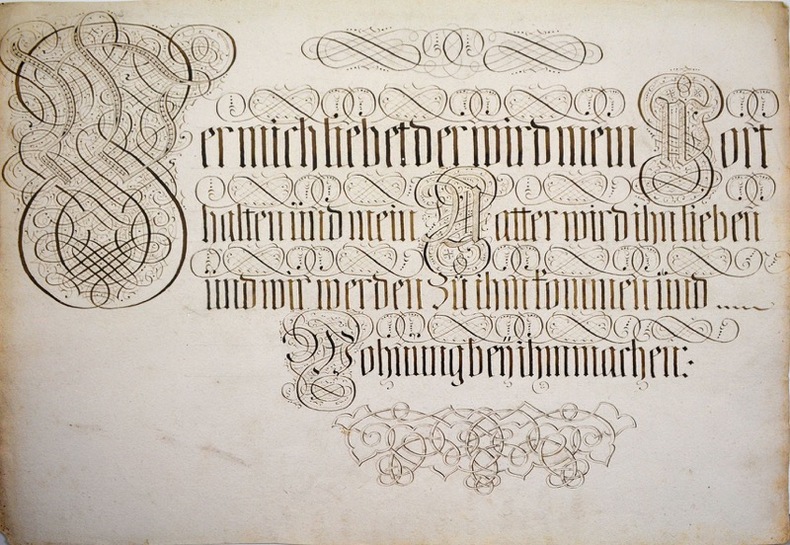 Wer mich liebet der wird mein Wort
halten ünd mein Vatter wird ihn lieben
ünd wir werden Zu ihm kommen ünd
Wohnüng beÿ ihm machen: